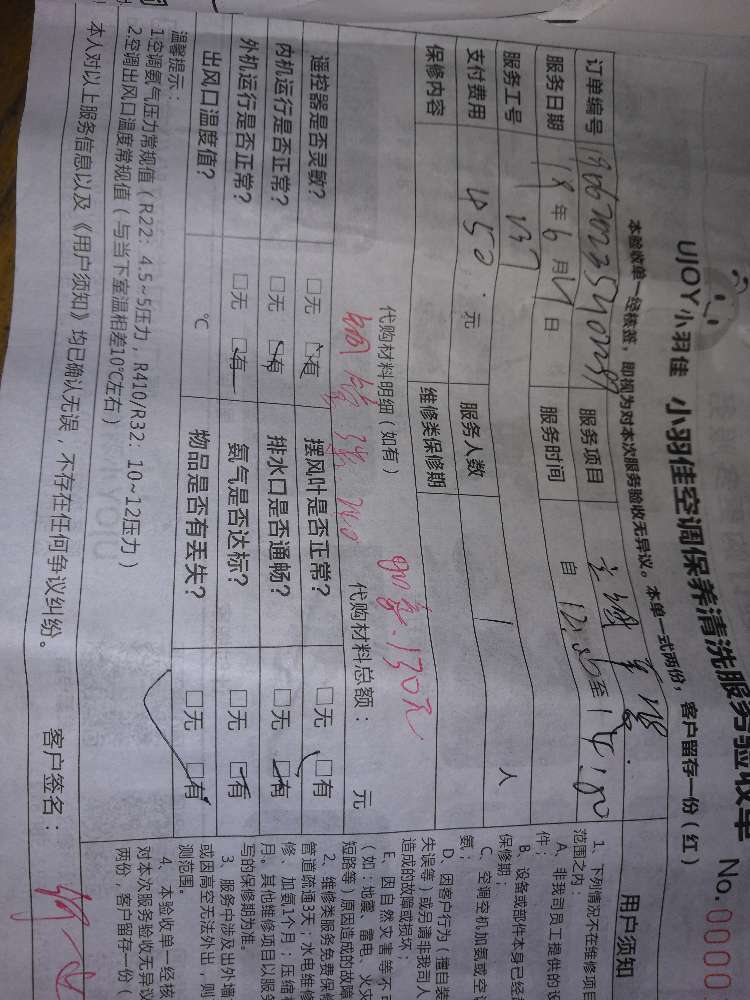 UJOY小羽佳 小羽佳空调保养清洗服务验收单 No.0000
本验收单一经核签，即视为对本次服务验收无异议。本单一式两份，客户留存一份（红）
订单编号 服务项目
服务日期 19年6月 日 服务时间 自12:00至14:00
服务工号 137
支付费用 450元 服务人数 1 人
保修内容 维修类保修期
代购材料明细（如有） 代购材料总额： 元
加氟.130元
遥控器是否灵敏？ □无 □有 摆风叶是否正常？ □无 □有
内机运行是否正常？ □无 □有 排水口是否通畅？ □无 □有
外机运行是否正常？ □无 □有 氨气是否达标？ □无 □有
出风口温度值？ ℃ 物品是否有丢失？ □无 □有
温馨提示：
1.空调氨气压力常规值（R22：4.5~5压力，R410/R32：10~12压力）
2.空调出风口温度常规值（与当下室温相差10℃左右）
本人对以上服务信息以及《用户须知》均已确认无误，不存在任何争议纠纷。 客户签名：
用户须知
1、下列情况不在维修项目
范围之内：
A、非我司员工提供的设
件；
B、设备或部件本身已经
保修期；
C、空调空机加氨或空调
氨；
D、因客户行为（擅自装
失误等）或另请非我司人
造成的故障或损坏；
E、因自然灾害等不可
（如：地震、雷电、火灾
短路等）原因造成的故障
2、维修类服务免费保修
管道疏通3天；水电维修
修、加氨1个月；压缩机
月。其他维修项目以服务
写的保修期为准。
3、服务中涉及出外墙
或因高空无法外出，则
测范围。
4、本验收单一经核
对本次服务验收无异议
两份，客户留存一份（